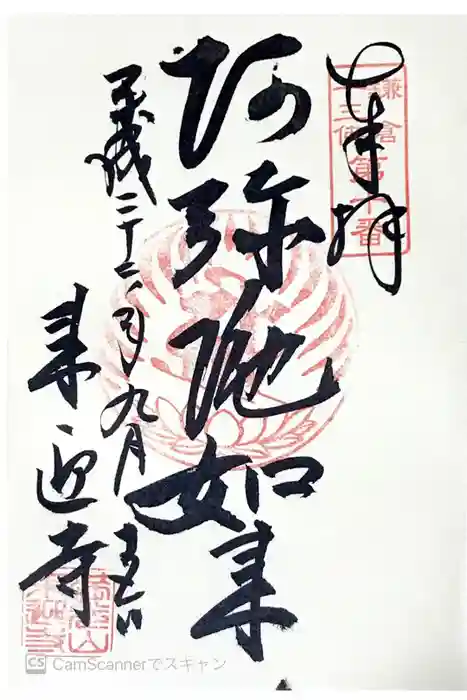 奉拝
鎌倉
三十三
第十番
阿弥陀如来
平成二十二年九月
来迎寺
CS CamScannerでスキャン